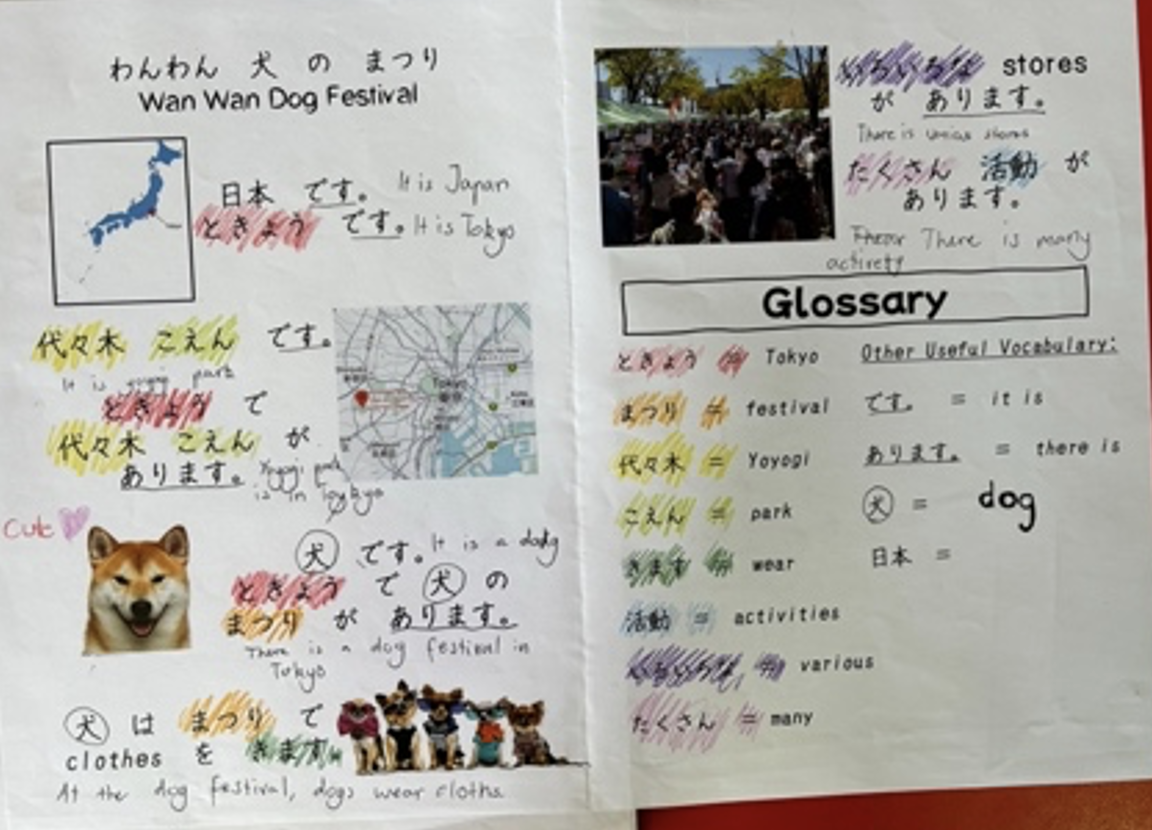 わんわん 犬 の まつり
Wan Wan Dog Festival
日本 です。 It is Japan
ときょう です。 It is Tokyo
代々木 こえん です。
It is yoyogi park
ときょう で
代々木 こえん が
あります。 Yoyogi park
is in Toykyo
Tokyo
Cute
犬 です。 It is a dog
ときょう で 犬 の
まつり が あります。
There is a dog festival in
Tokyo
犬 は まつり で
clothes を きます。
At the dog festival, dogs wear cloths
いろいろな stores
が あります。
There is stores
たくさん 活動 が
あります。
There is many
activety
Glossary
ときょう = Tokyo
まつり = festival
代々木 = Yoyogi
こえん = park
きます = wear
活動 = activities
いろいろな = various
たくさん = many
Other Useful Vocabulary:
です。 = it is
あります。 = there is
犬 = dog
日本 =